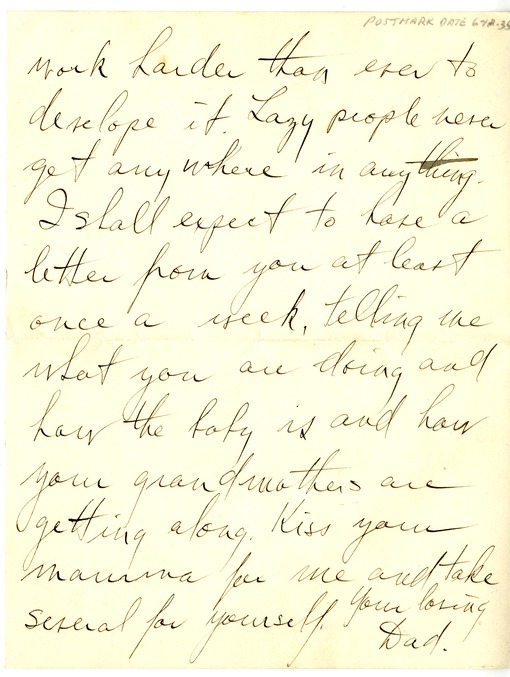 POSTMARK DATE
work harder than ever to
develope it. Lazy people never
get anywhere in anything.
I shall expect to have a
letter from you at least
once a week, telling me
what you are doing and
how the baby is and how
your grandmothers are
getting along. Kiss your
mamma for me and take
several for yourself. Your loving
Dad.